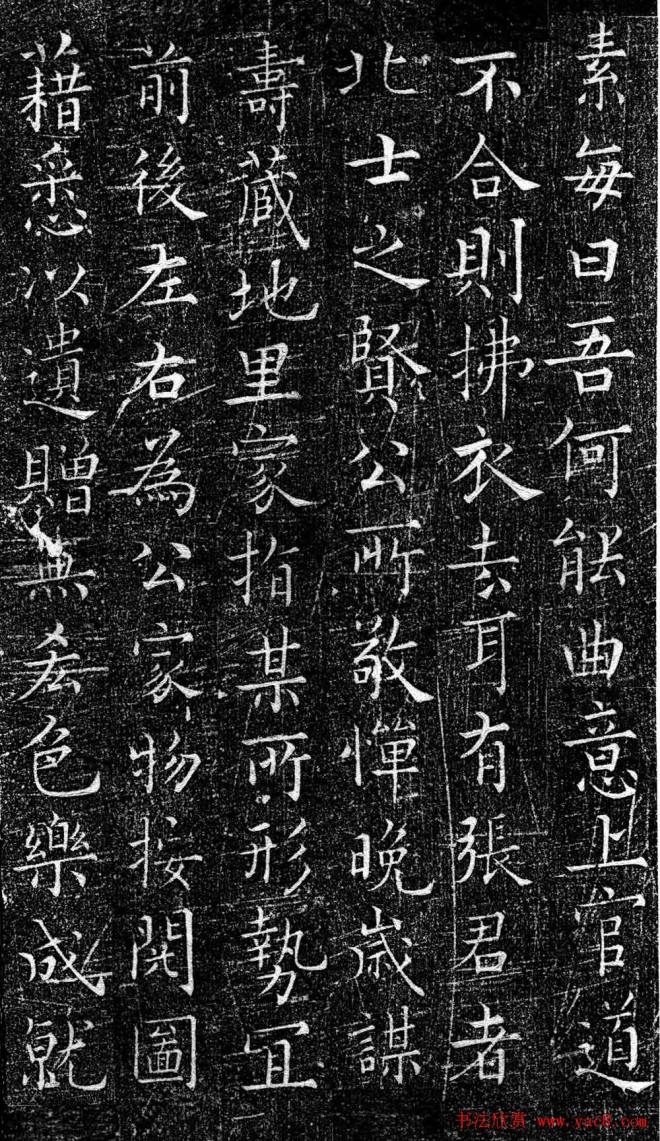 素每曰吾何能曲意上官道
不合則拂衣去耳有張君者
北士之賢公所敬憚晚歲謀
壽藏地里家指某所形勢冝
前後左右為公家物按閱圖
藉悉以遺贈無吝色樂成就
书法欣赏 www.yac8.com